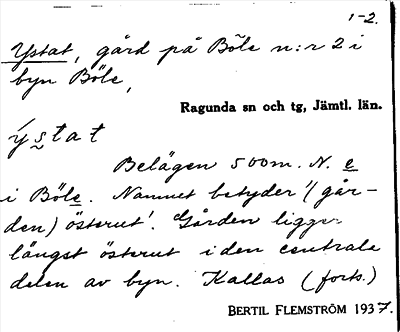 1-2.
Ystat, gård på Böle n:r 2 i
byn Böle,
Ragunda sn och tg, Jämtl. län.
ýstat
Belägen 500 m. N. e
i Böle. Namnet betyder '(går-
den) österut'. Gården ligger
längst österut i den centrala
delen av byn. Kallas (forts.)
BERTIL FLEMSTRÖM 1937.